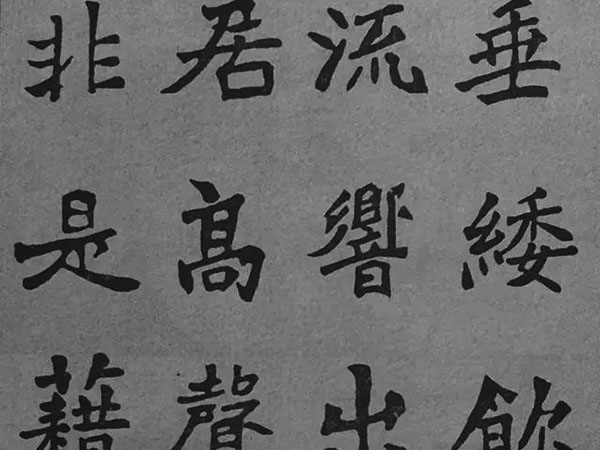 垂緌飲
流響出
居高聲
非是藉